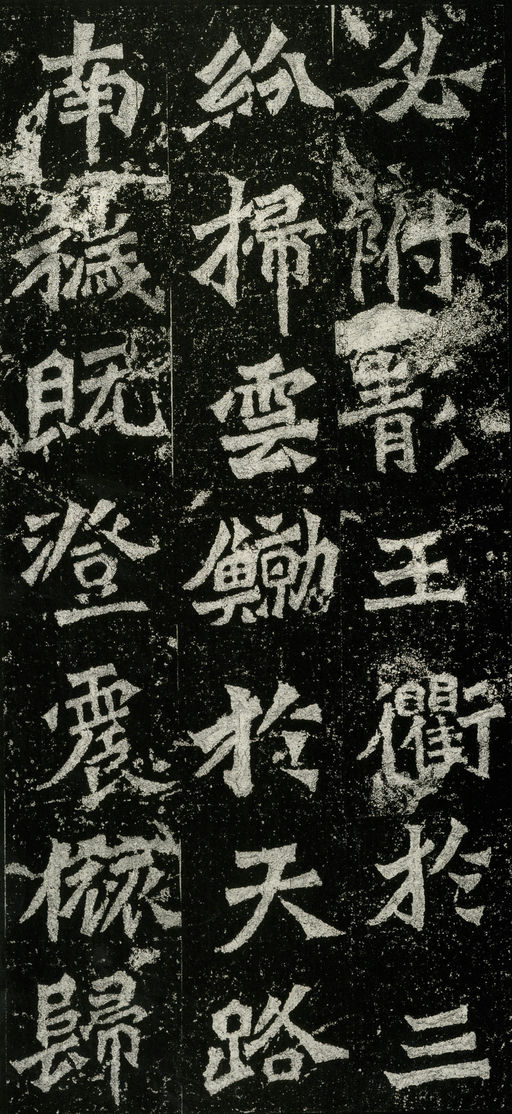 必附清王衢於三
紛掃雲鯨於天路
南穢既澄震旅歸